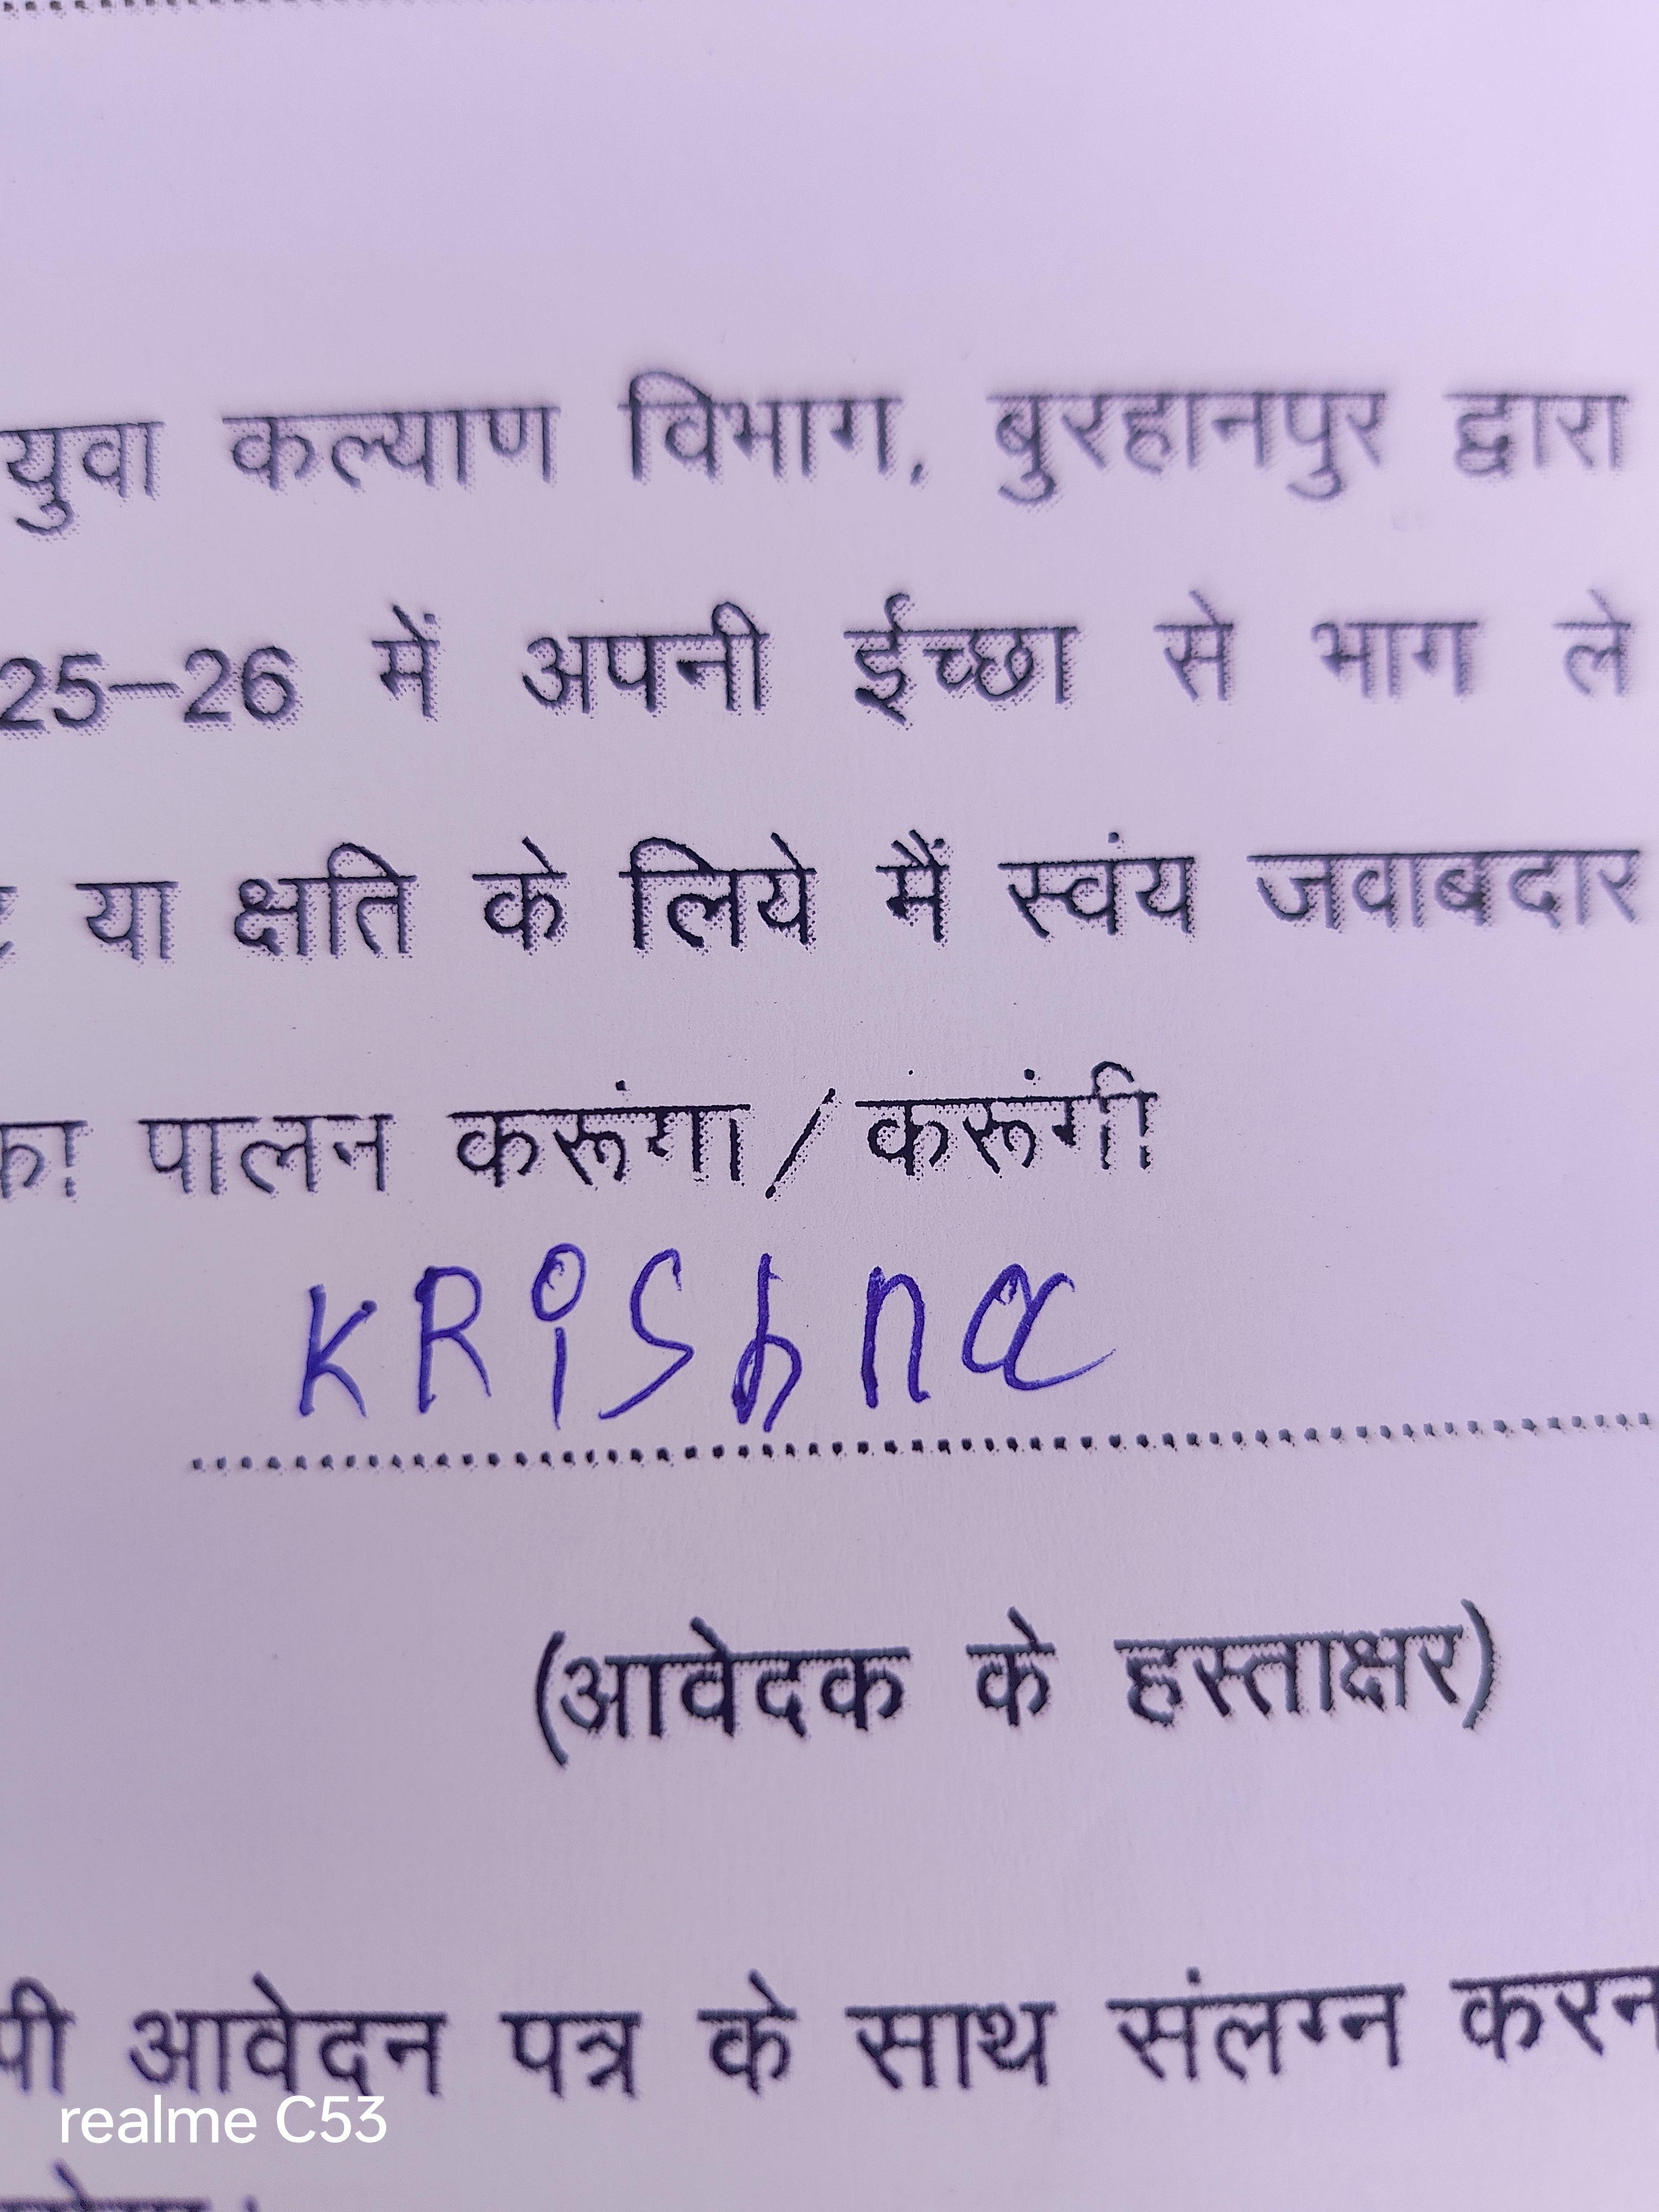 युवा कल्याण विभाग, बुरहानपुर द्वारा
25–26 में अपनी ईच्छा से भाग ले
या क्षति के लिये मैं स्वंय जवाबदार
का पालन करूंगा/करूंगी
KRiShna
(आवेदक के हस्ताक्षर)
पी आवेदन पत्र के साथ संलग्न करन
realme C53